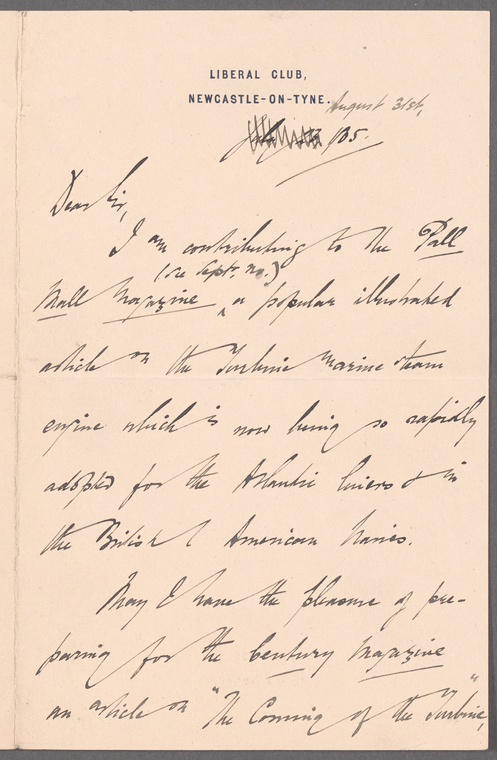 LIBERAL CLUB,
NEWCASTLE-ON-TYNE.
August 31st,
July /05.
Dear Sir,
I am contributing to the Pall
(see Sept. no.)
Mall Magazine ^ a popular illustrated
article on the Turbine marine steam
engine which is now being so rapidly
adopted for the Atlantic liners & in
the British & American Navies.
May I have the pleasure of pre-
paring for the Century Magazine
an article on "The Coming of the Turbine,"